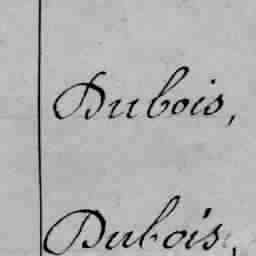 Dubois,
Dubois,